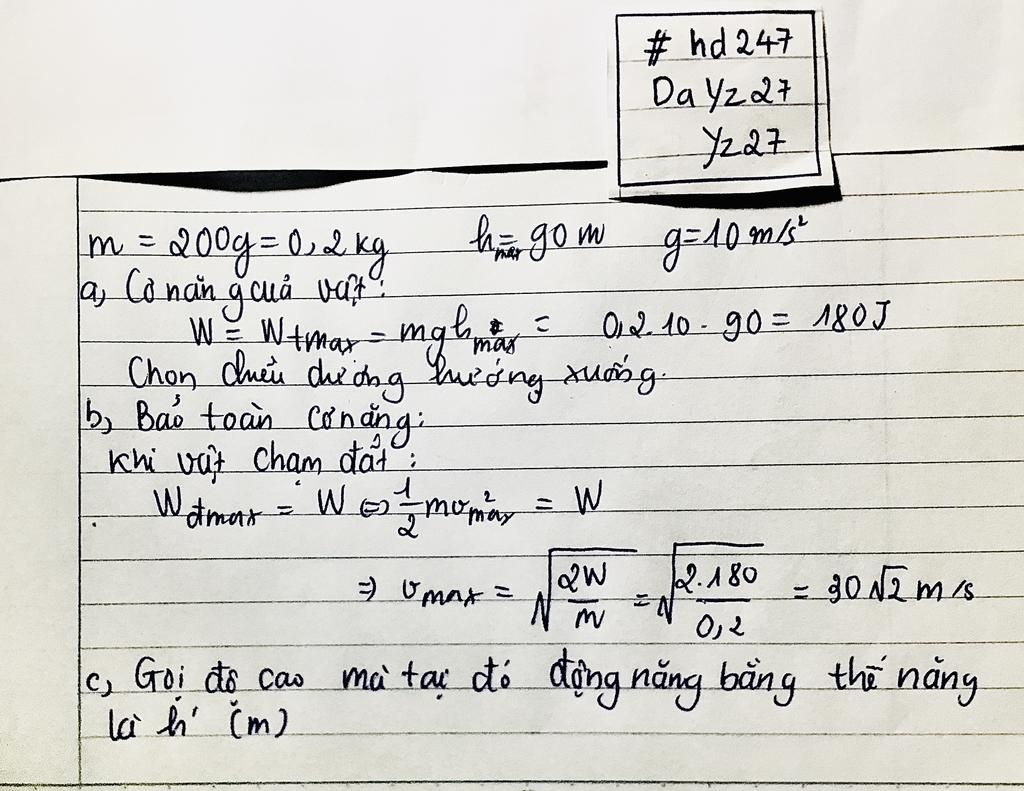 # hd247
DaYz27
Yz27
m = 200g = 0,2 kg h max = 90 m g = 10 m/s²
a, Cơ năng của vật:
W = Wtmax = mgh max = 0,2.10.90 = 180J
Chọn chiều dương hướng xuống.
b, Bảo toàn cơ năng:
Khi vật chạm đất:
Wđmax = W ⇔ 1/2 mv²max = W
⇒ vmax = √(2W/m) = √(2.180/0,2) = 30√2 m/s
c, Gọi độ cao mà tại đó động năng bằng thế năng
là h' (m)